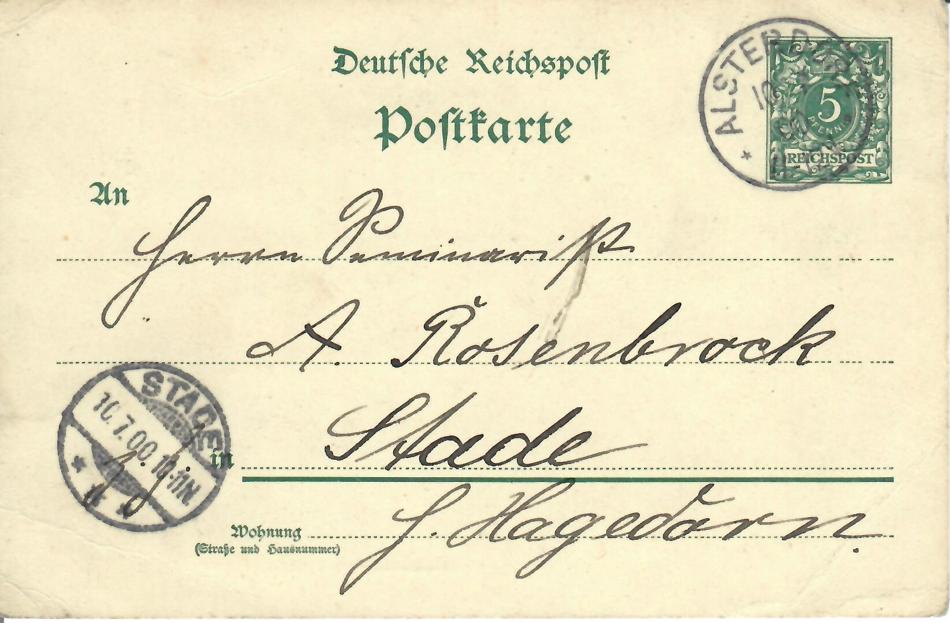 Deutsche Reichspost
Postkarte
ALSTERDORF
5
PFENNIG
REICHSPOST
An
Herrn Seminarist
A. Rosenbrock
STADE
10.7.00.10-11N.
in Stade
Wohnung
(Straße und Hausnummer)
Hagedorn.